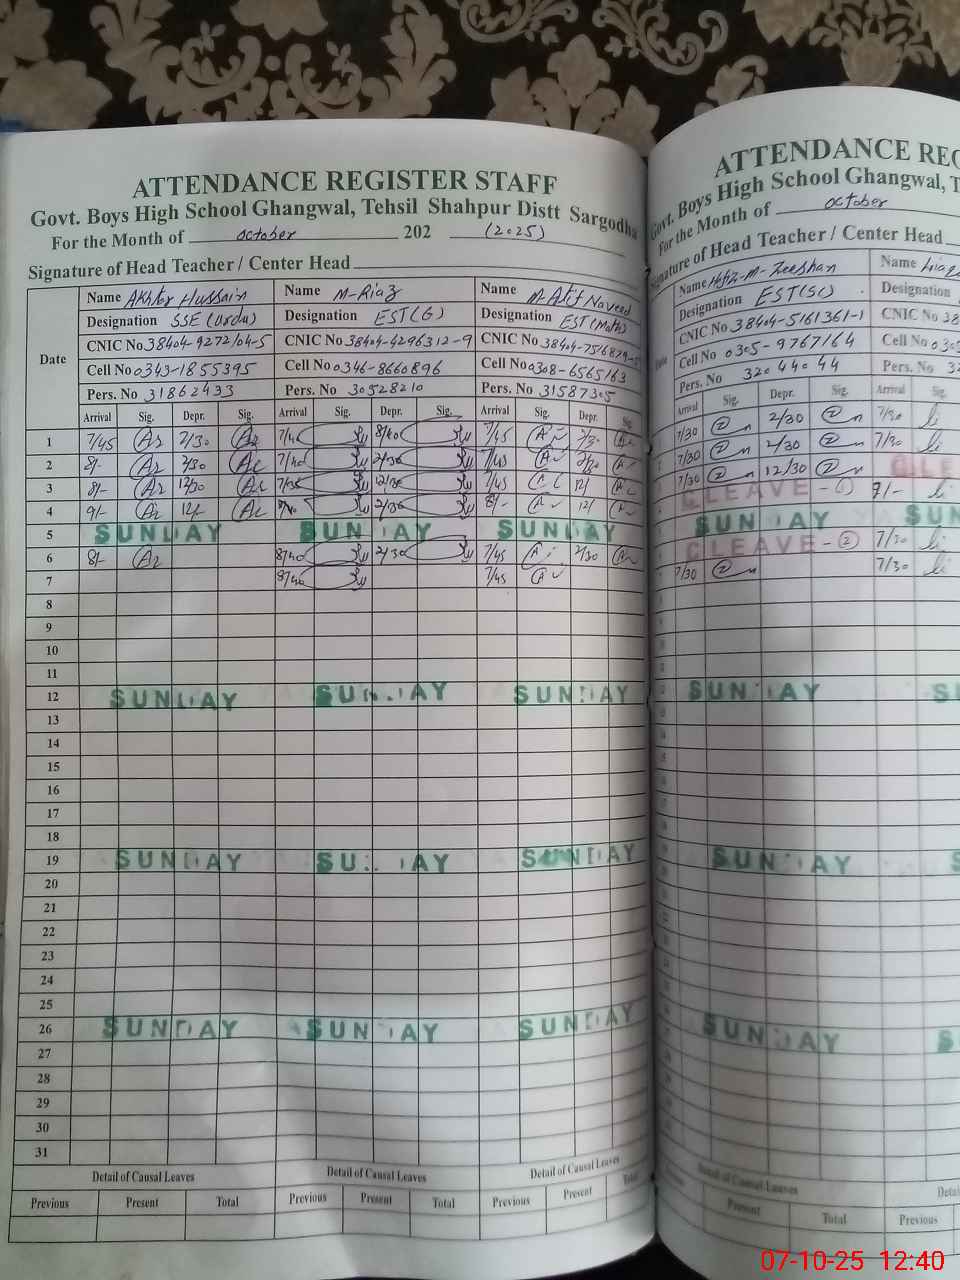 ATTENDANCE REGISTER STAFF
Govt. Boys High School Ghangwal, Tehsil Shahpur Distt Sargodha
For the Month of October 202 (2025)
Signature of Head Teacher / Center Head
Date
Name Akhtar Hussain Name M-Riaz Name M-Atif Naveed
Designation SSE (Urdu) Designation EST (G) Designation EST (Math)
CNIC No 38404-9272104-5 CNIC No. 38404-4296312-9 CNIC No
Cell No 0343-1855395 Cell No 0346-8660896 Cell No 0308-6565163
Pers. No 31862433 Pers. No 30528210 Pers. No 31587305
Arrival Sig. Depr. Sig. Arrival Sig. Depr. Sig. Arrival Sig. Depr. Sig.
1 7/45 2/30 7/45
2 8/- 2/30 7/40 2/30 7/45
3 8/- 12/30 7/35 12/30 7/45 12/
4 9/- 12/- 2/30 8/- 12/
5 SUNDAY SUNDAY SUNDAY
6 8/- 8/40 2/30 7/45 2/30
7 8/40 7/45
8
9
10
11
12 SUNDAY SUNDAY SUNDAY
13
14
15
16
17
18
19 SUNDAY SUNDAY SUNDAY
20
21
22
23
24
25
26 SUNDAY SUNDAY SUNDAY
27
28
29
30
31
Detail of Causal Leaves Detail of Causal Leaves Detail of Causal Leaves
Previous Present Total Previous Present Total Previous Present Total
ATTENDANCE REG
Govt. Boys High School Ghangwal, T
For the Month of October
Signature of Head Teacher / Center Head
Name Hafiz-M-Zeeshan Name
Designation EST (SC) Designation
CNIC No 38404-5161361-1 CNIC No 38
Cell No 0305-9767164 Cell No 030
Pers. No 32044044 Pers. No 32
Arrival Sig. Depr. Sig. Arrival Sig.
7/30 2/30 7/30
7/30 2/30 7/30
7/30 12/30 C.LE
C LEAVE - ① 9/-
SUNDAY SUN
C LEAVE - ② 7/30
7/30 7/30
SUNDAY S
SUNDAY S
SUNDAY S
Detail of Causal Leaves Detai
Present Total Previous
07-10-25 12:40